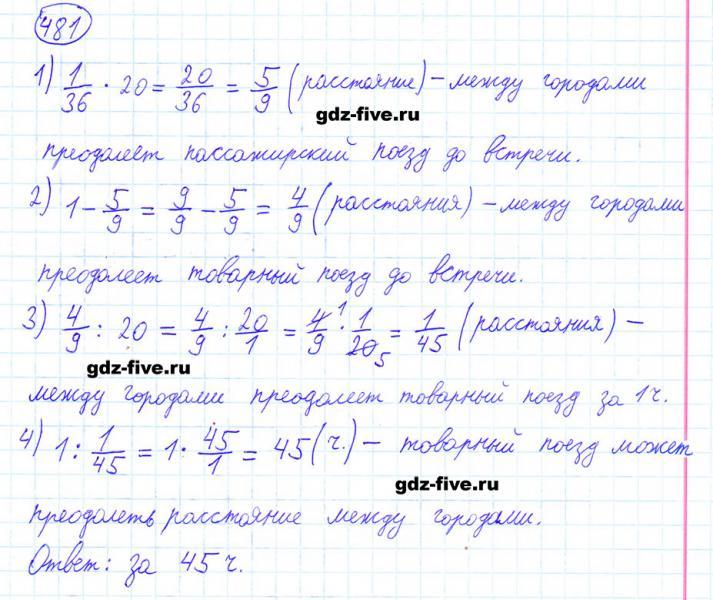 481
1) 1/36 · 20 = 20/36 = 5/9 (расстояние) – между городами
gdz-five.ru
преодалеет пассажирский поезд до встречи.
2) 1 – 5/9 = 9/9 – 5/9 = 4/9 (расстояния) – между городами
преодолеет товарный поезд до встречи.
3) 4/9 : 20 = 4/9 : 20/1 = 4/9 1 · 1/20 5 = 1/45 (расстояния) –
gdz-five.ru
между городами преодолеет товарный поезд за 1 ч.
4) 1 : 1/45 = 1 · 45/1 = 45 (ч.) – товарный поезд может
gdz-five.ru
преодолеть расстояние между городами.
Ответ: за 45 ч.